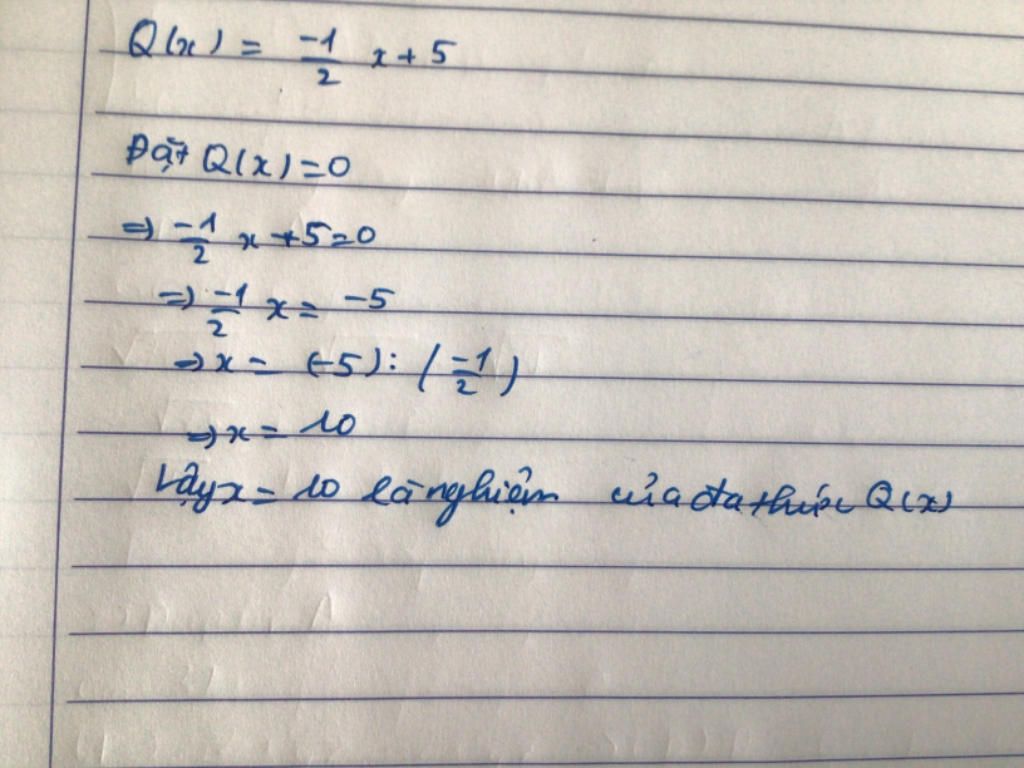 Q(x) = -1/2 x + 5
Đặt Q(x) = 0
=> -1/2 x + 5 = 0
=> -1/2 x = -5
=> x = (-5) : (-1/2)
=> x = 10
Vậy x = 10 là nghiệm của đa thức Q(x)